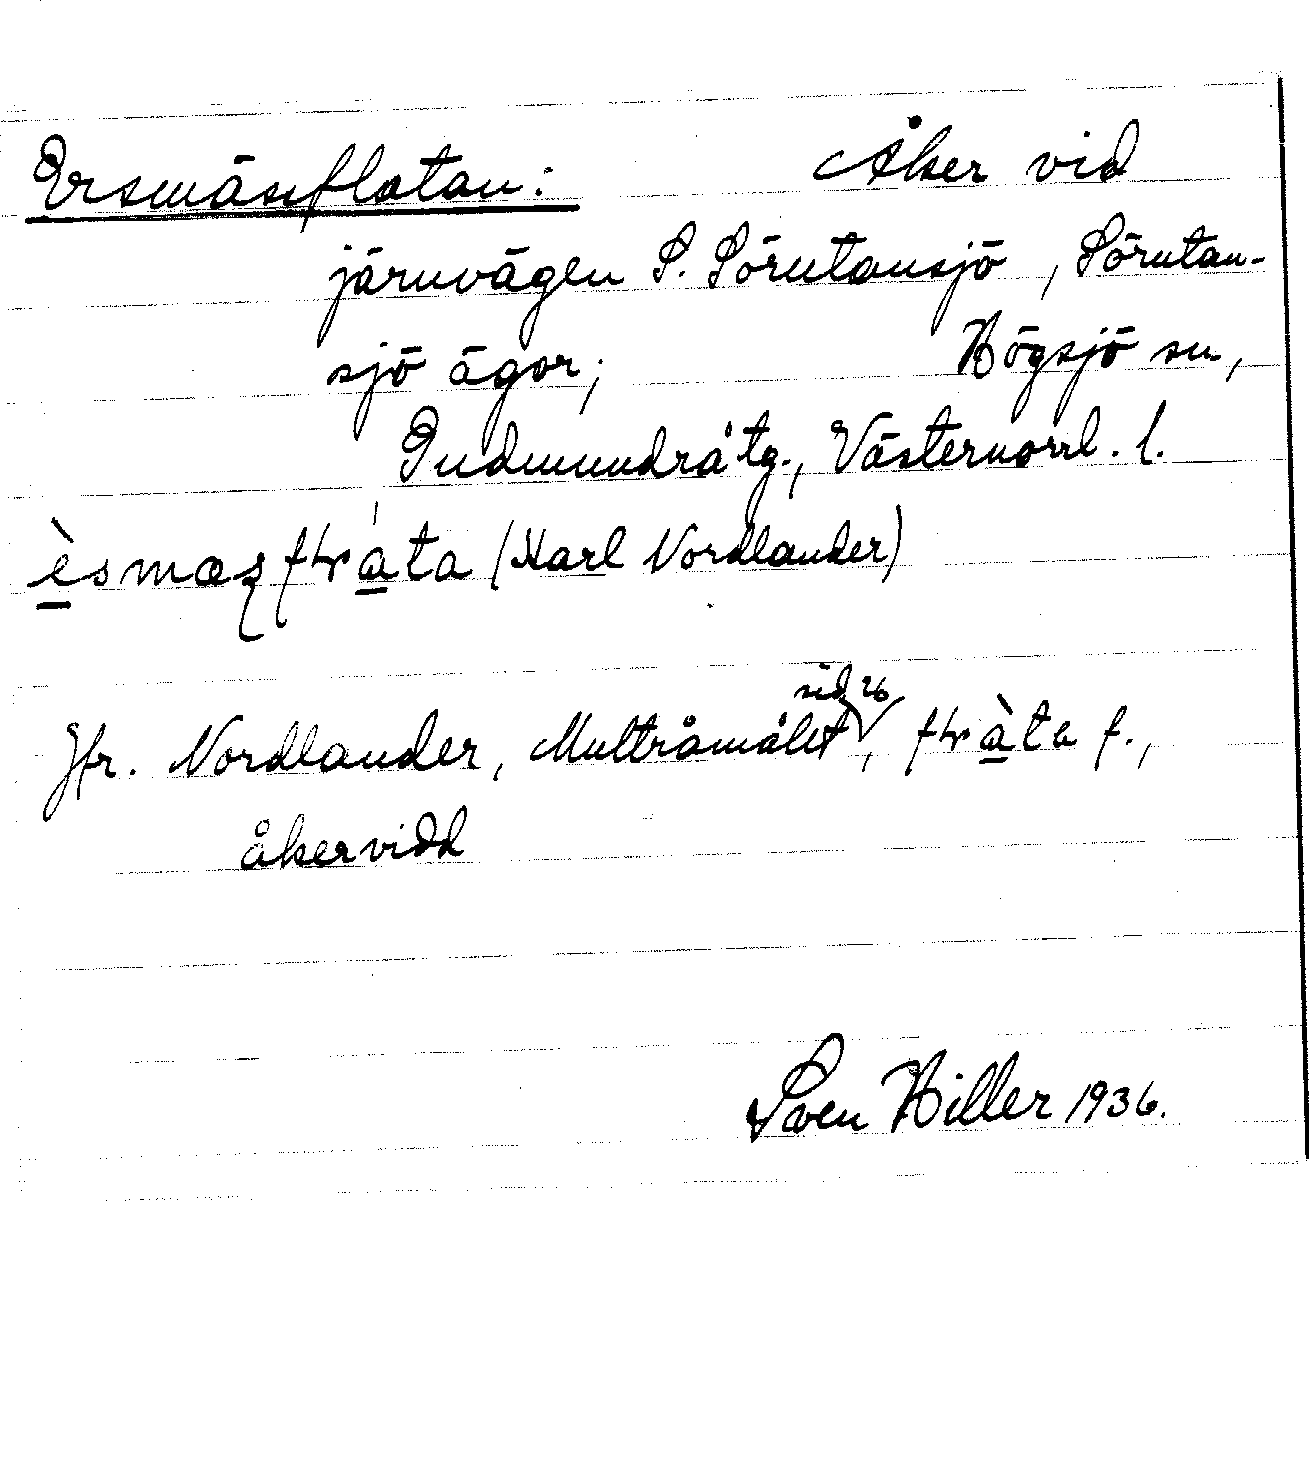 Ersmäsflatan: Åker vid
järnvägen S. Sörutansjö, Sörutan-
sjö ägor; Högsjö sn,
Gudmundrå tg., Västernorrl. l.
(Karl Nordlander)
Jfr. Nordlander, Multråmålet sid 26, f.,
åkervidd
Sven Hiller 1936.